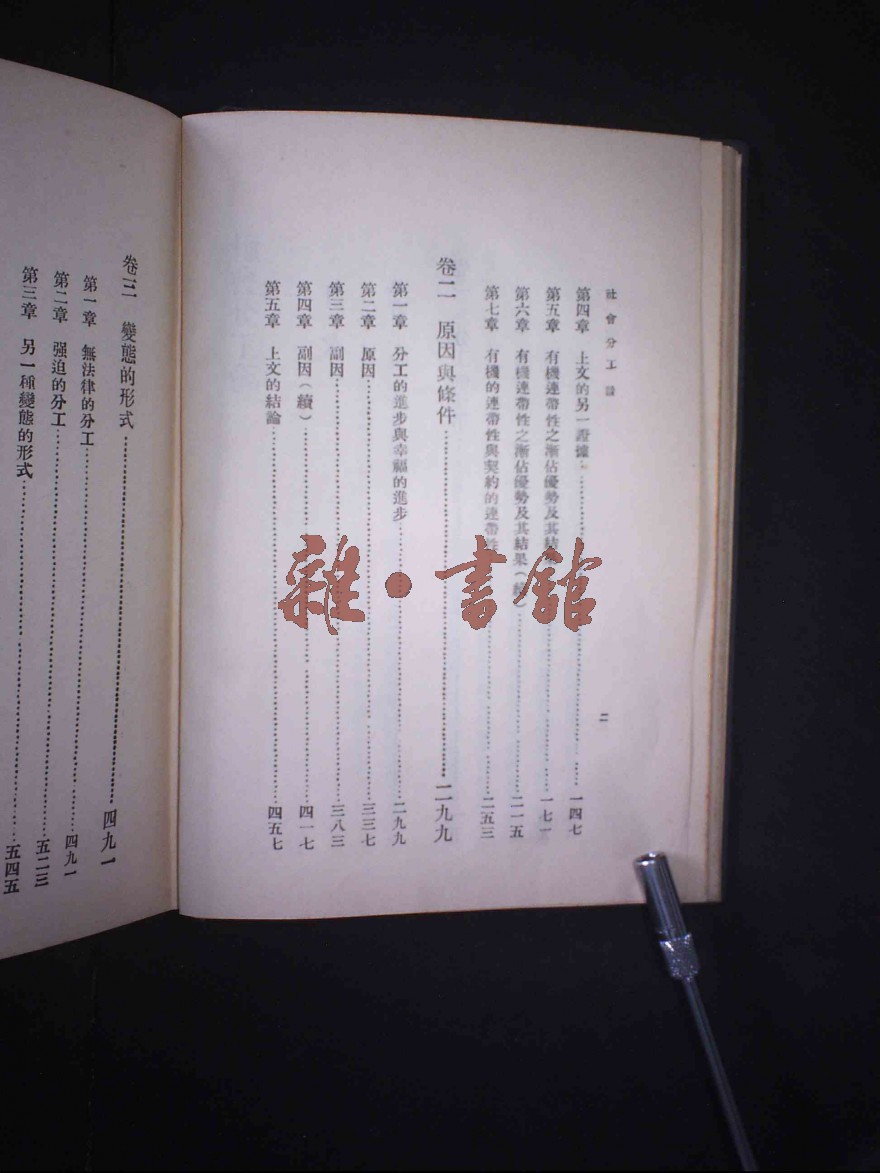 社會分工論
二
第四章 上文的另一證據 一四七
第五章 有機連帶性之漸佔優勢及其結果 一七一
第六章 有機連帶性之漸佔優勢及其結果（續） 二一五
第七章 有機的連帶性與契約的連帶性 二五三
卷二 原因與條件 二九九
第一章 分工的進步與幸福的進步 二九九
第二章 原因 三三七
第三章 副因 三八三
第四章 副因（續） 四一七
第五章 上文的結論 四五七
卷三 變態的形式 四九一
第一章 無法律的分工 四九一
第二章 强迫的分工 五二三
第三章 另一種變態的形式 五四五
雜·書館